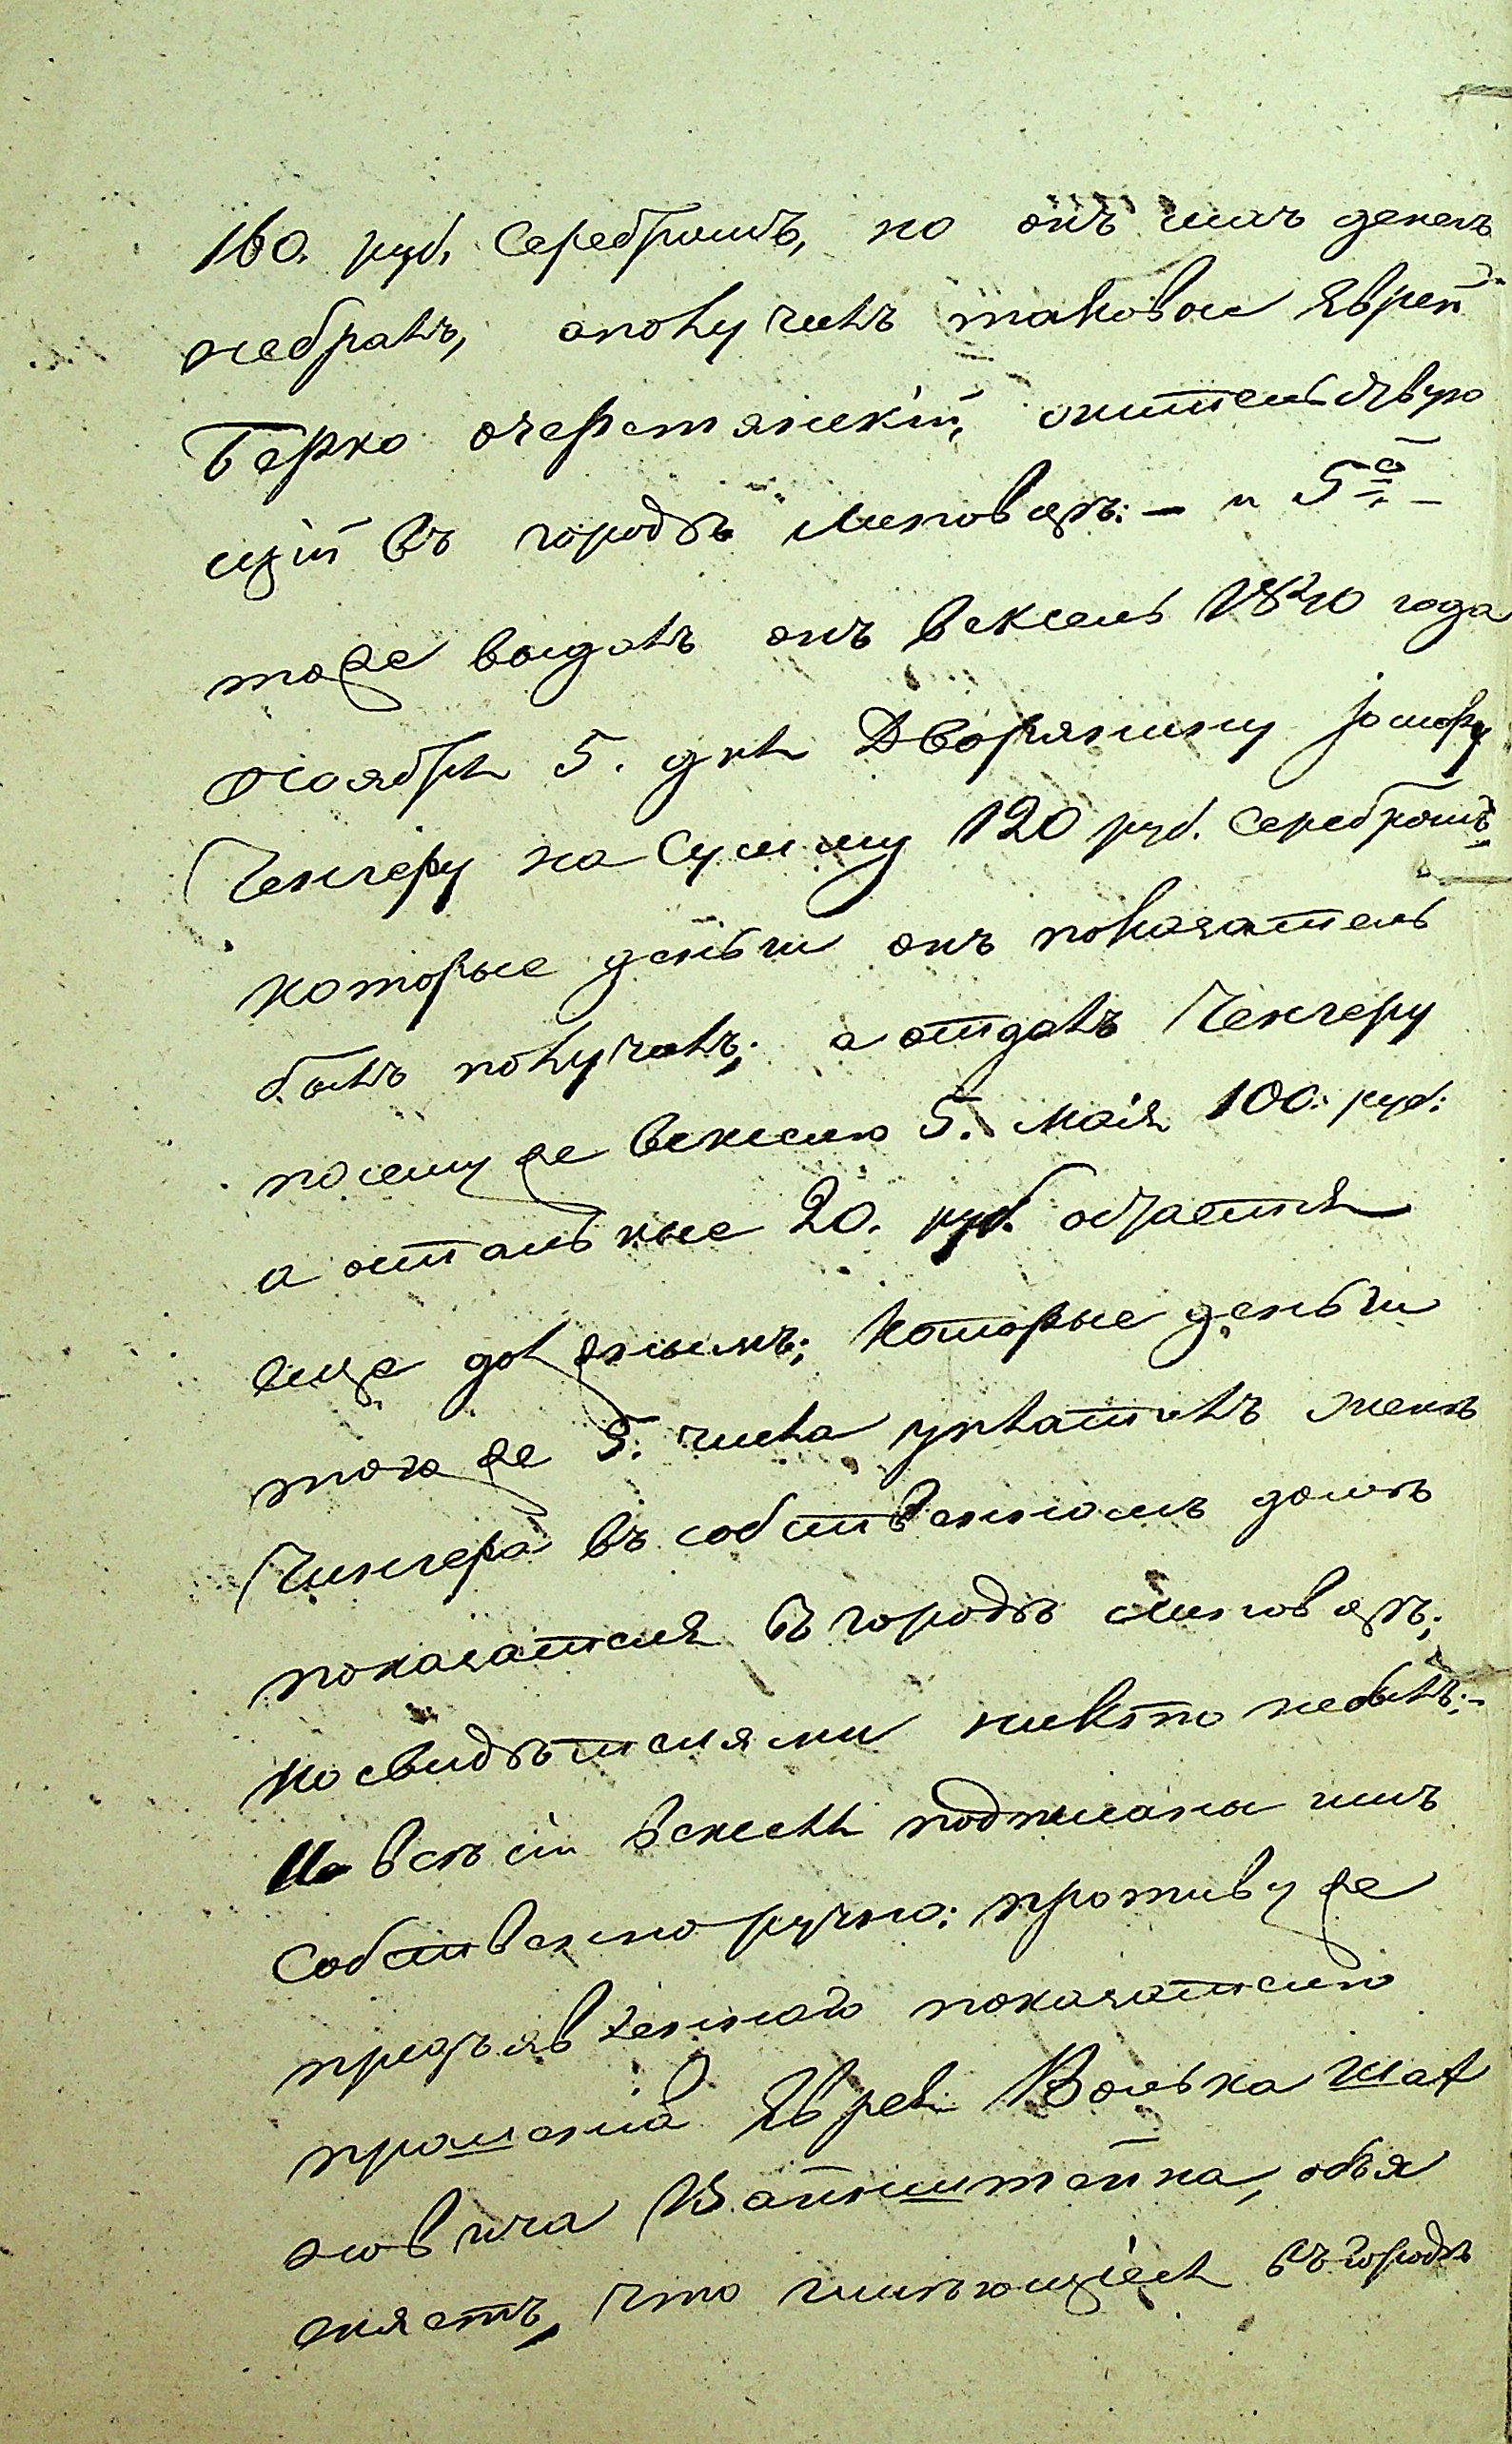 160. руб. серебромъ, но онъ ихъ денегъ
небралъ, аполучилъ таковые Яврей
Берко очеретянскій, жительствую
щій въ городѣ Липовцѣ: — и 5й —
тоже выдалъ онъ вексель 1840 года
Ноября 5. дня Дворянину Іосифу
Ченгеру на сумму 120 руб. серебромъ
которые деньги онъ показатель
былъ получилъ; а отдалъ Ченгеру
посемуже векселю 5. Маія 100: руб:
а остальные 20. руб. остается
еще долженымъ; которые деньги
тогоже 5. числа уплатилъ женѣ
Чингера въ собственномъ домѣ
показателя въ городѣ Липовцѣ;
но свидѣтелями никто небылъ:-
Но всѣ сіи векселя подписаны имъ
собственноручно: противуже
предъявленнаго показателю
прошенія Яврея Волька шах
новича Вайнштейна, объя
сняетъ, что имѣющіеся въ городѣ